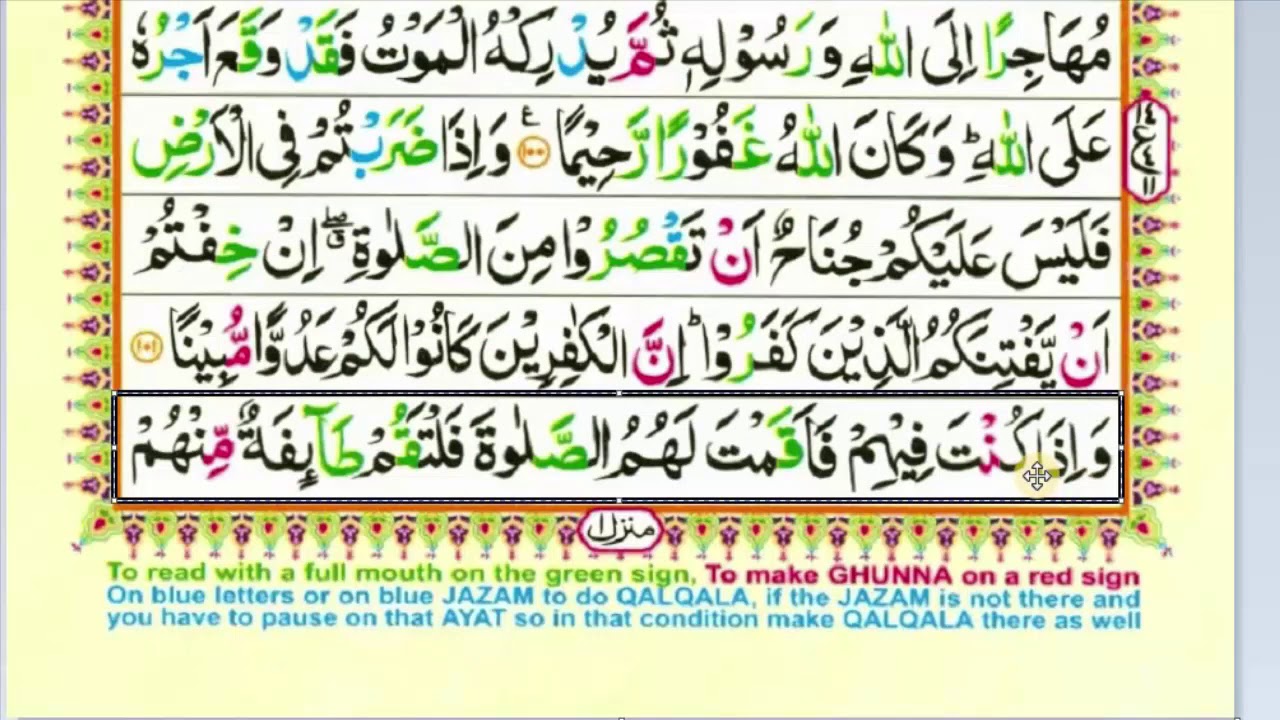 مُهَاجِرًا اِلَى اللّٰهِ وَرَسُوْلِهٖ ثُمَّ يُدْرِكْهُ الْمَوْتُ فَقَدْ وَقَعَ اَجْرُهٗ
عَلَى اللّٰهِ ؕ وَكَانَ اللّٰهُ غَفُوْرًا رَّحِيْمًا ۱۰۰ ع وَاِذَا ضَرَبْتُمْ فِى الْاَرْضِ
فَلَيْسَ عَلَيْكُمْ جُنَاحٌ اَنْ تَقْصُرُوْا مِنَ الصَّلٰوةِ ۖق اِنْ خِفْتُمْ
اَنْ يَّفْتِنَكُمُ الَّذِيْنَ كَفَرُوْا ؕ اِنَّ الْكٰفِرِيْنَ كَانُوْا لَكُمْ عَدُوًّا مُّبِيْنًا ۱۰۱
وَاِذَا كُنْتَ فِيْهِمْ فَاَقَمْتَ لَهُمُ الصَّلٰوةَ فَلْتَقُمْ طَآئِفَةٌ مِّنْهُمْ
منزل ۱
To read with a full mouth on the green sign, To make GHUNNA on a red sign
On blue letters or on blue JAZAM to do QALQALA, if the JAZAM is not there and
you have to pause on that AYAT so in that condition make QALQALA there as well